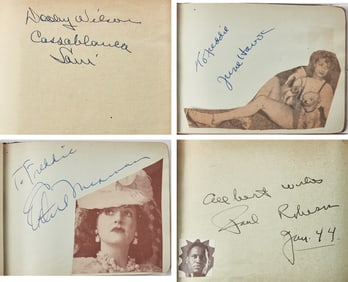 Dooley Wilson
Cassablanca
Sam
To Freddie
June Havoc
To Freddie
Ethel Merman
All best wishes
Paul Robeson
Jan. 44.